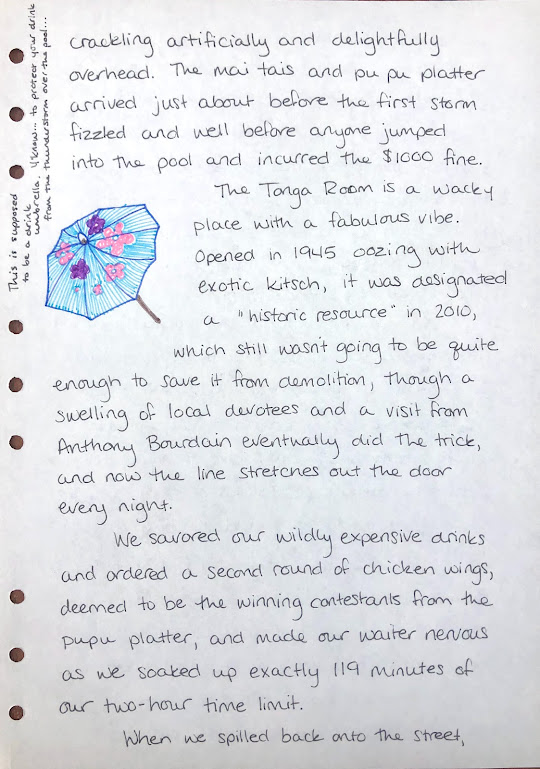 This is supposed
to be a drink
umbrella. Y'know... to protect your drink
from the thunderstorm over the pool...
crackling artificially and delightfully
overhead. The mai tais and pu pu platter
arrived just about before the first storm
fizzled and well before anyone jumped
into the pool and incurred the $1000 fine.
The Tonga Room is a wacky
place with a fabulous vibe.
Opened in 1945 oozing with
exotic kitsch, it was designated
a "historic resource" in 2010,
which still wasn't going to be quite
enough to save it from demolition, though a
swelling of local devotees and a visit from
Anthony Bourdain eventually did the trick,
and now the line stretches out the door
every night.
We savored our wildly expensive drinks
and ordered a second round of chicken wings,
deemed to be the winning contestants from the
pupu platter, and made our waiter nervous
as we soaked up exactly 119 minutes of
our two-hour time limit.
When we spilled back onto the street,